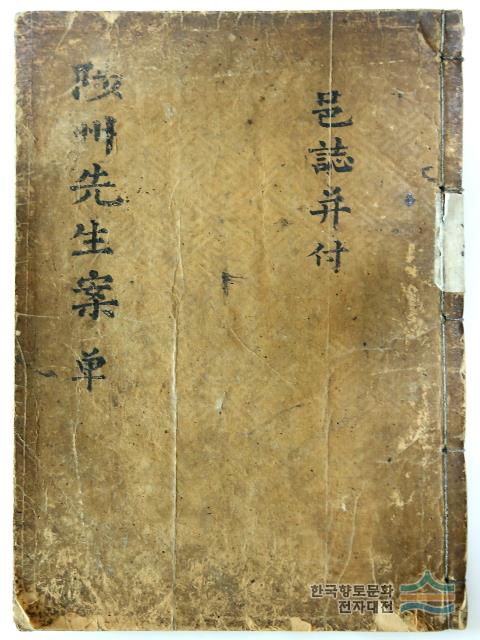 邑誌并付
陜州先生案 単
한국향토문화
전자대전